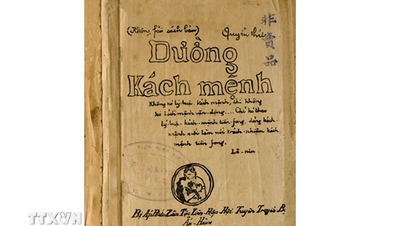 (Không phải sách bán) Quyển thứ
非賣品
Đường
Kách mệnh
Không có lý luận kách mệnh, thì không
có kách mệnh vận động... Chỉ có theo
lý luận kách mệnh tiền fong, đảng kách
mệnh mới làm nổi trách nhiệm kách
mệnh tiền fong.
Lê-nin
Bị Áp Bức Dân Tộc Liên Hợp Hội Tuyên Truyền Bộ
Ấn Hành
TTXVN